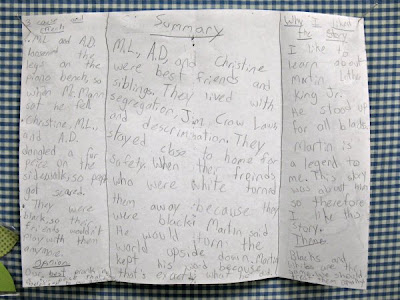 3 cause and
effects
• M.L. and A.D.
loosened the
legs on the
piano bench, so
when Mr. Mann
sat he fell
• Christine, M.L.,
and A.D.
dangled a fur
piece on the
sidewalks, so people
got scared.
• They were
black, so their
friends wouldn't
play with them
anymore.
Summary
M.L., A.D, and Christine
were best friends and
siblings. They lived with
segregation, Jim Crow Laws
and descrimination. They
stayed close to home for
safety. When their freinds
who were white turned
them away because they
were black. Martin said
He would turn the
world upside down. Martin
kept his word because
that's exactly
Why I liked
the story
I like to
learn about
Martin Luther
King Jr.
He stood up
for all blacks.
Martin is
a legend to
me. This story
was about him
so therefore
I like this
story.
Theme
Blacks and